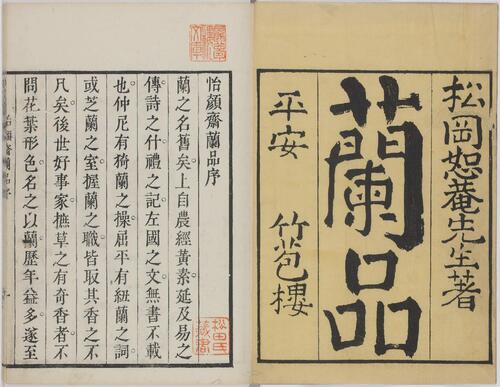 松岡恕菴先生著
蘭品
平安 竹苞樓
怡顏齋蘭品序
蘭之名舊矣上自農經黃素延及易之
傳詩之什禮之記左國之文無書不載
也仲尼有猗蘭之操屈平有紐蘭之詞
或芝蘭之室握蘭之職皆取其香之不
凡矣後世好事家撫草之有奇香者不
問花葉形色名之以蘭歷年益多遂至
松田氏
藏書